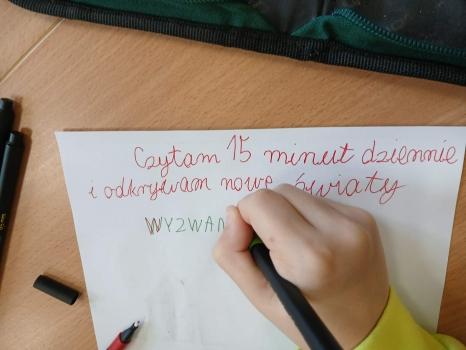 Czytam 15 minut dziennie
i odkrywam nowe światy
WYZWAN